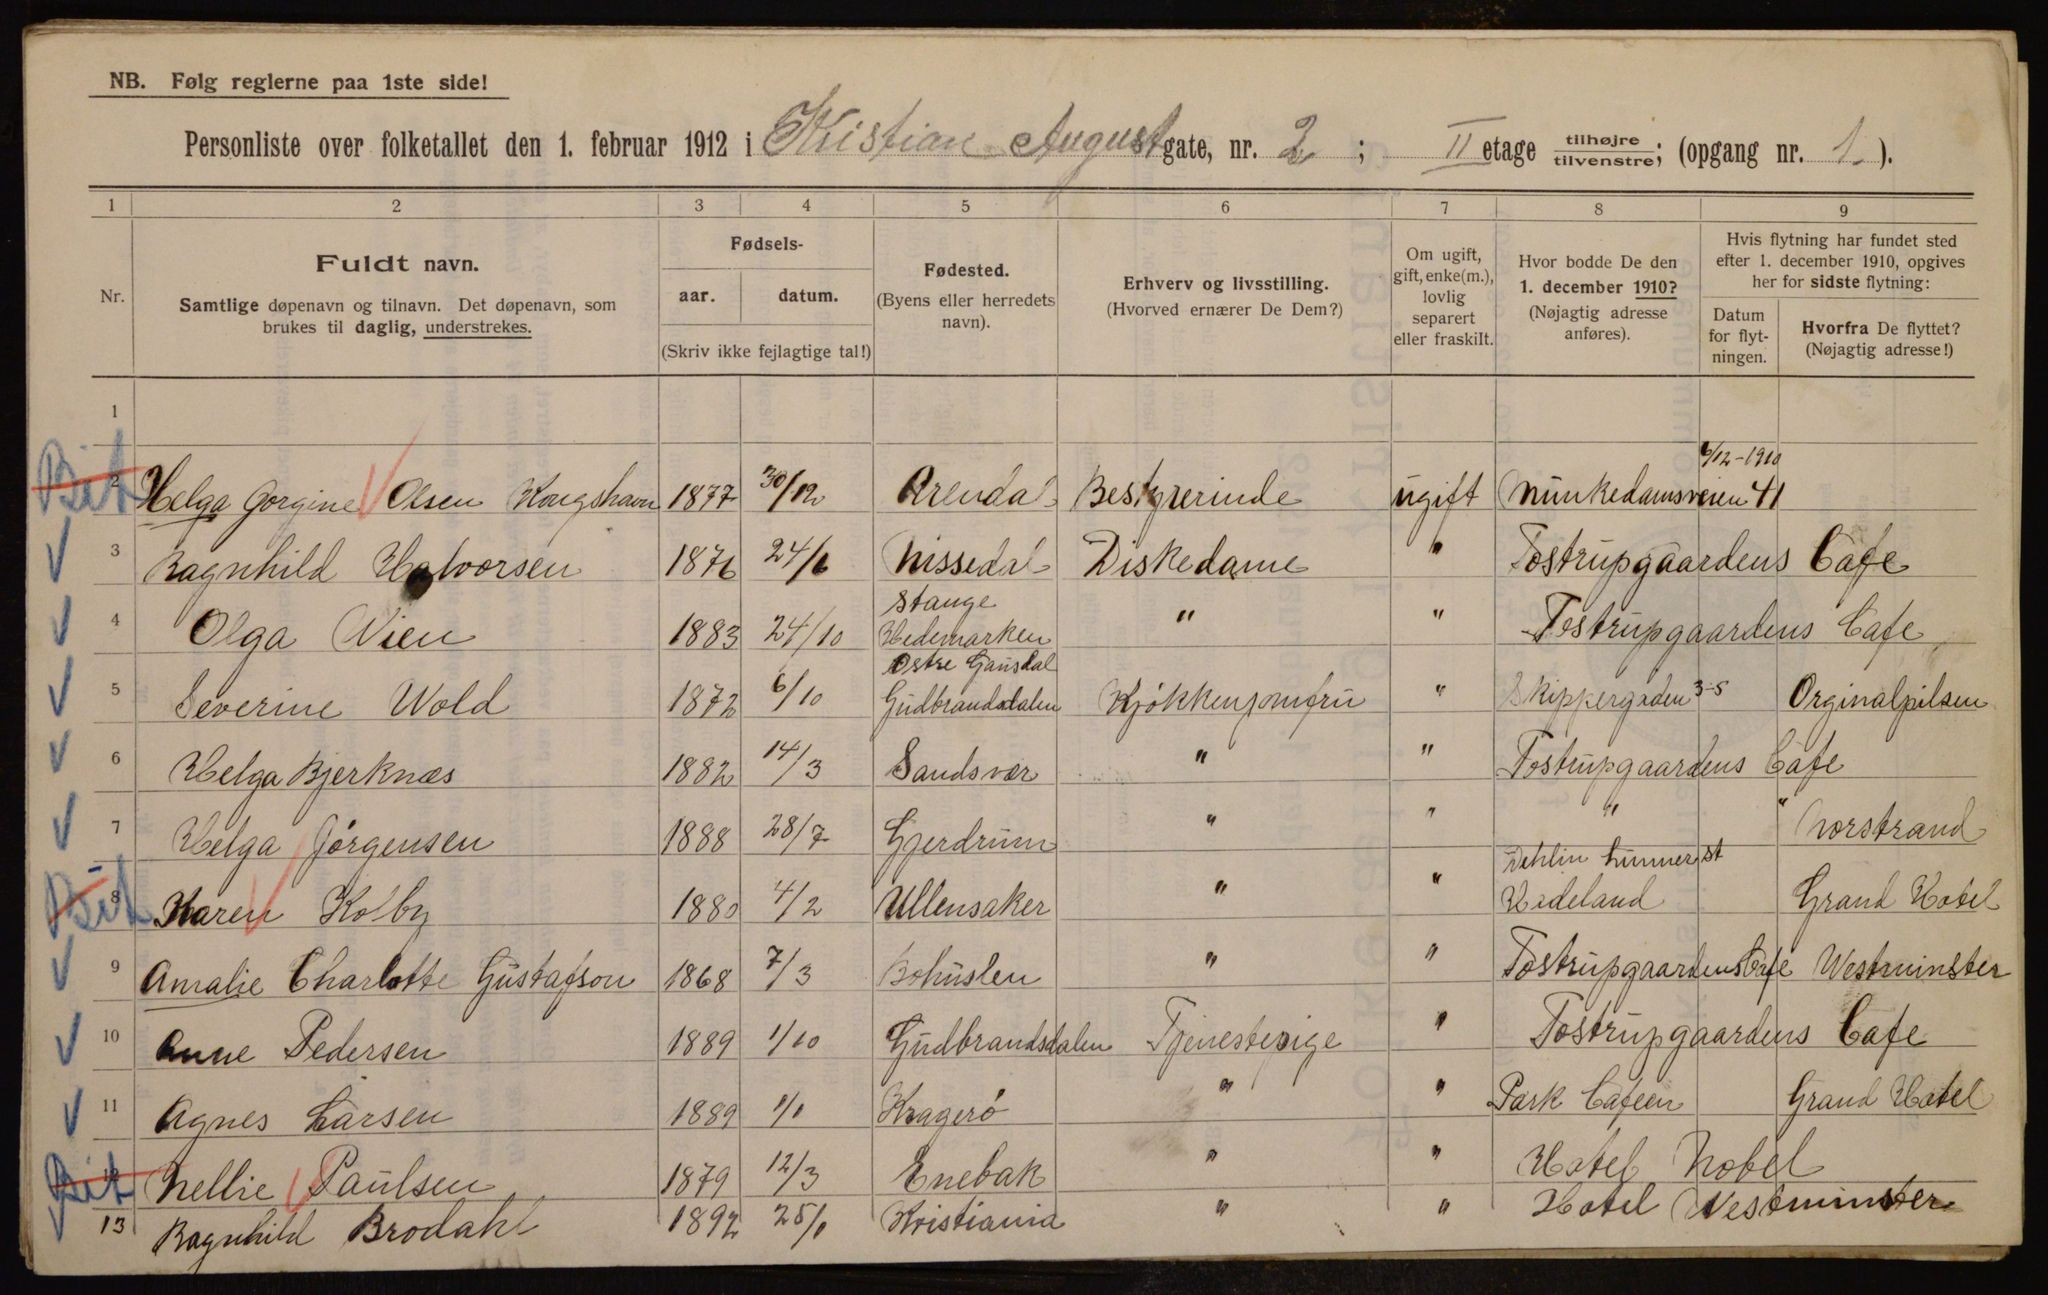 NB. Følg reglerne paa 1ste side!
Personliste over folketallet den 1. februar 1912 i Kristian August gate, nr. 2 ; II etage tilhøjre / tilvenstre; (opgang nr. 1. ).
1 2 3 4 5 6 7 8 9
Nr.
Fuldt navn.
Samtlige døpenavn og tilnavn. Det døpenavn, som
brukes til daglig, understrekes.
Fødsels-
aar. datum.
(Skriv ikke fejlagtige tal!)
Fødested.
(Byens eller herredets
navn).
Erhverv og livsstilling.
(Hvorved ernærer De Dem?)
Om ugift,
gift, enke(m.),
lovlig
separert
eller fraskilt.
Hvor bodde De den
1. december 1910?
(Nøjagtig adresse
anføres).
Hvis flytning har fundet sted
efter 1. december 1910, opgives
her for sidste flytning:
Datum
for flyt-
ningen.
Hvorfra De flyttet?
(Nøjagtig adresse!)
1
2 Helga Gorgine Olsen Kongshavn 1877 30/12 Arendal Bestyrerinde ugift Munkedamsveien 41 6/12-1910
3 Ragnhild Halvorsen 1876 24/6 Nissedal Diskedame " Tostrupgaardens Cafe
4 Olga Wien 1883 24/10 Stange Hedemarken " " Tostrupgaardens Cafe
5 Severine Wold 1872 6/10 Østre Gausdal Gudbrandsdalen Kjøkkenjomfru " Skippergaden 3-5 Orginalpilsen
6 Helga Bjerknæs 1882 14/3 Sandsvær " " Tostrupgaardens Cafe
7 Helga Jørgensen 1888 28/7 Gjerdrum " " " " Norstrand
8 Karen Kolby 1880 4/2 Ullensaker " " Hadeland Grand Hotel
9 Amalie Charlotte Gustafson 1868 7/3 Bohuslen " " Tostrupgaardens Cafe Westminster
10 Anne Pedersen 1889 1/10 Gudbrandsdalen Tjenestepige " Tostrupgaardens Cafe
11 Agnes Larsen 1889 1/1 Kragerø " " Park Cafeen Grand Hotel
12 Nellie Paulsen 1879 12/3 Enebak " " Hotel Nobel
13 Ragnhild Brodahl 1892 25/1 Kristiania " " Hotel Westminster